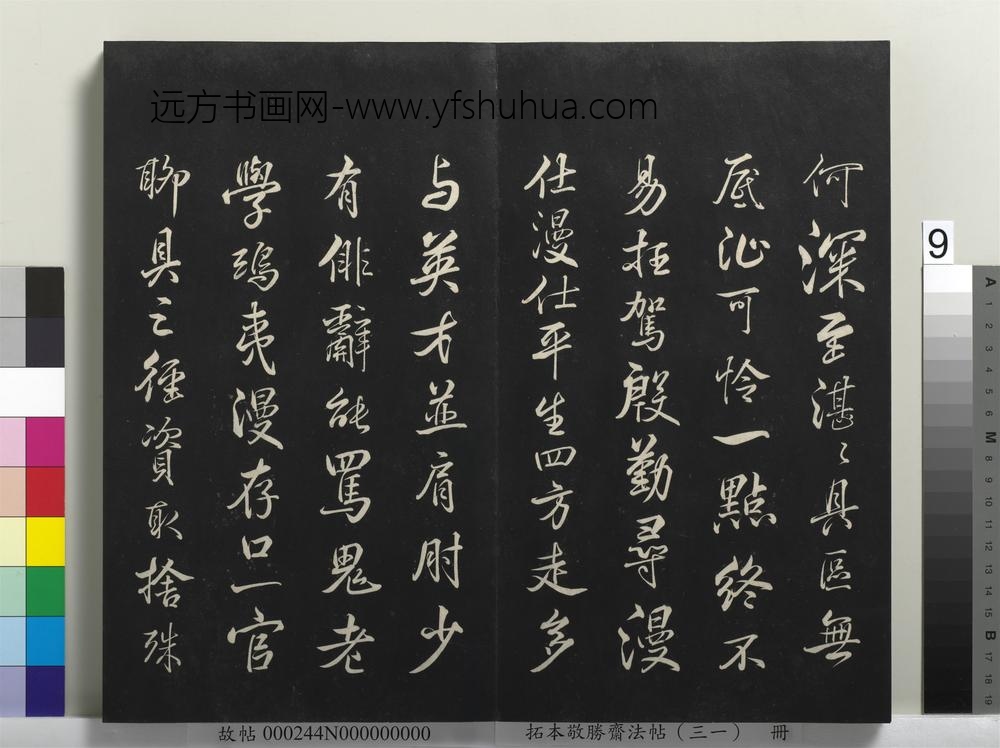 远方书画网-www.yfshuhua.com
何深至湛〻具區無
底沚可怜一點終不
易枉駕殷勤尋漫
仕漫仕平生四方走多
与英才並肩肘少
有俳辭能罵鬼老
學鴟夷漫存口一官
聊具三徑資取捨殊
故帖 000244N000000000
拓本敬勝齋法帖（三一） 冊
9
A
1
2
3
4
5
6
M
8
9
10
11
12
13
14
15
B
17
18
19